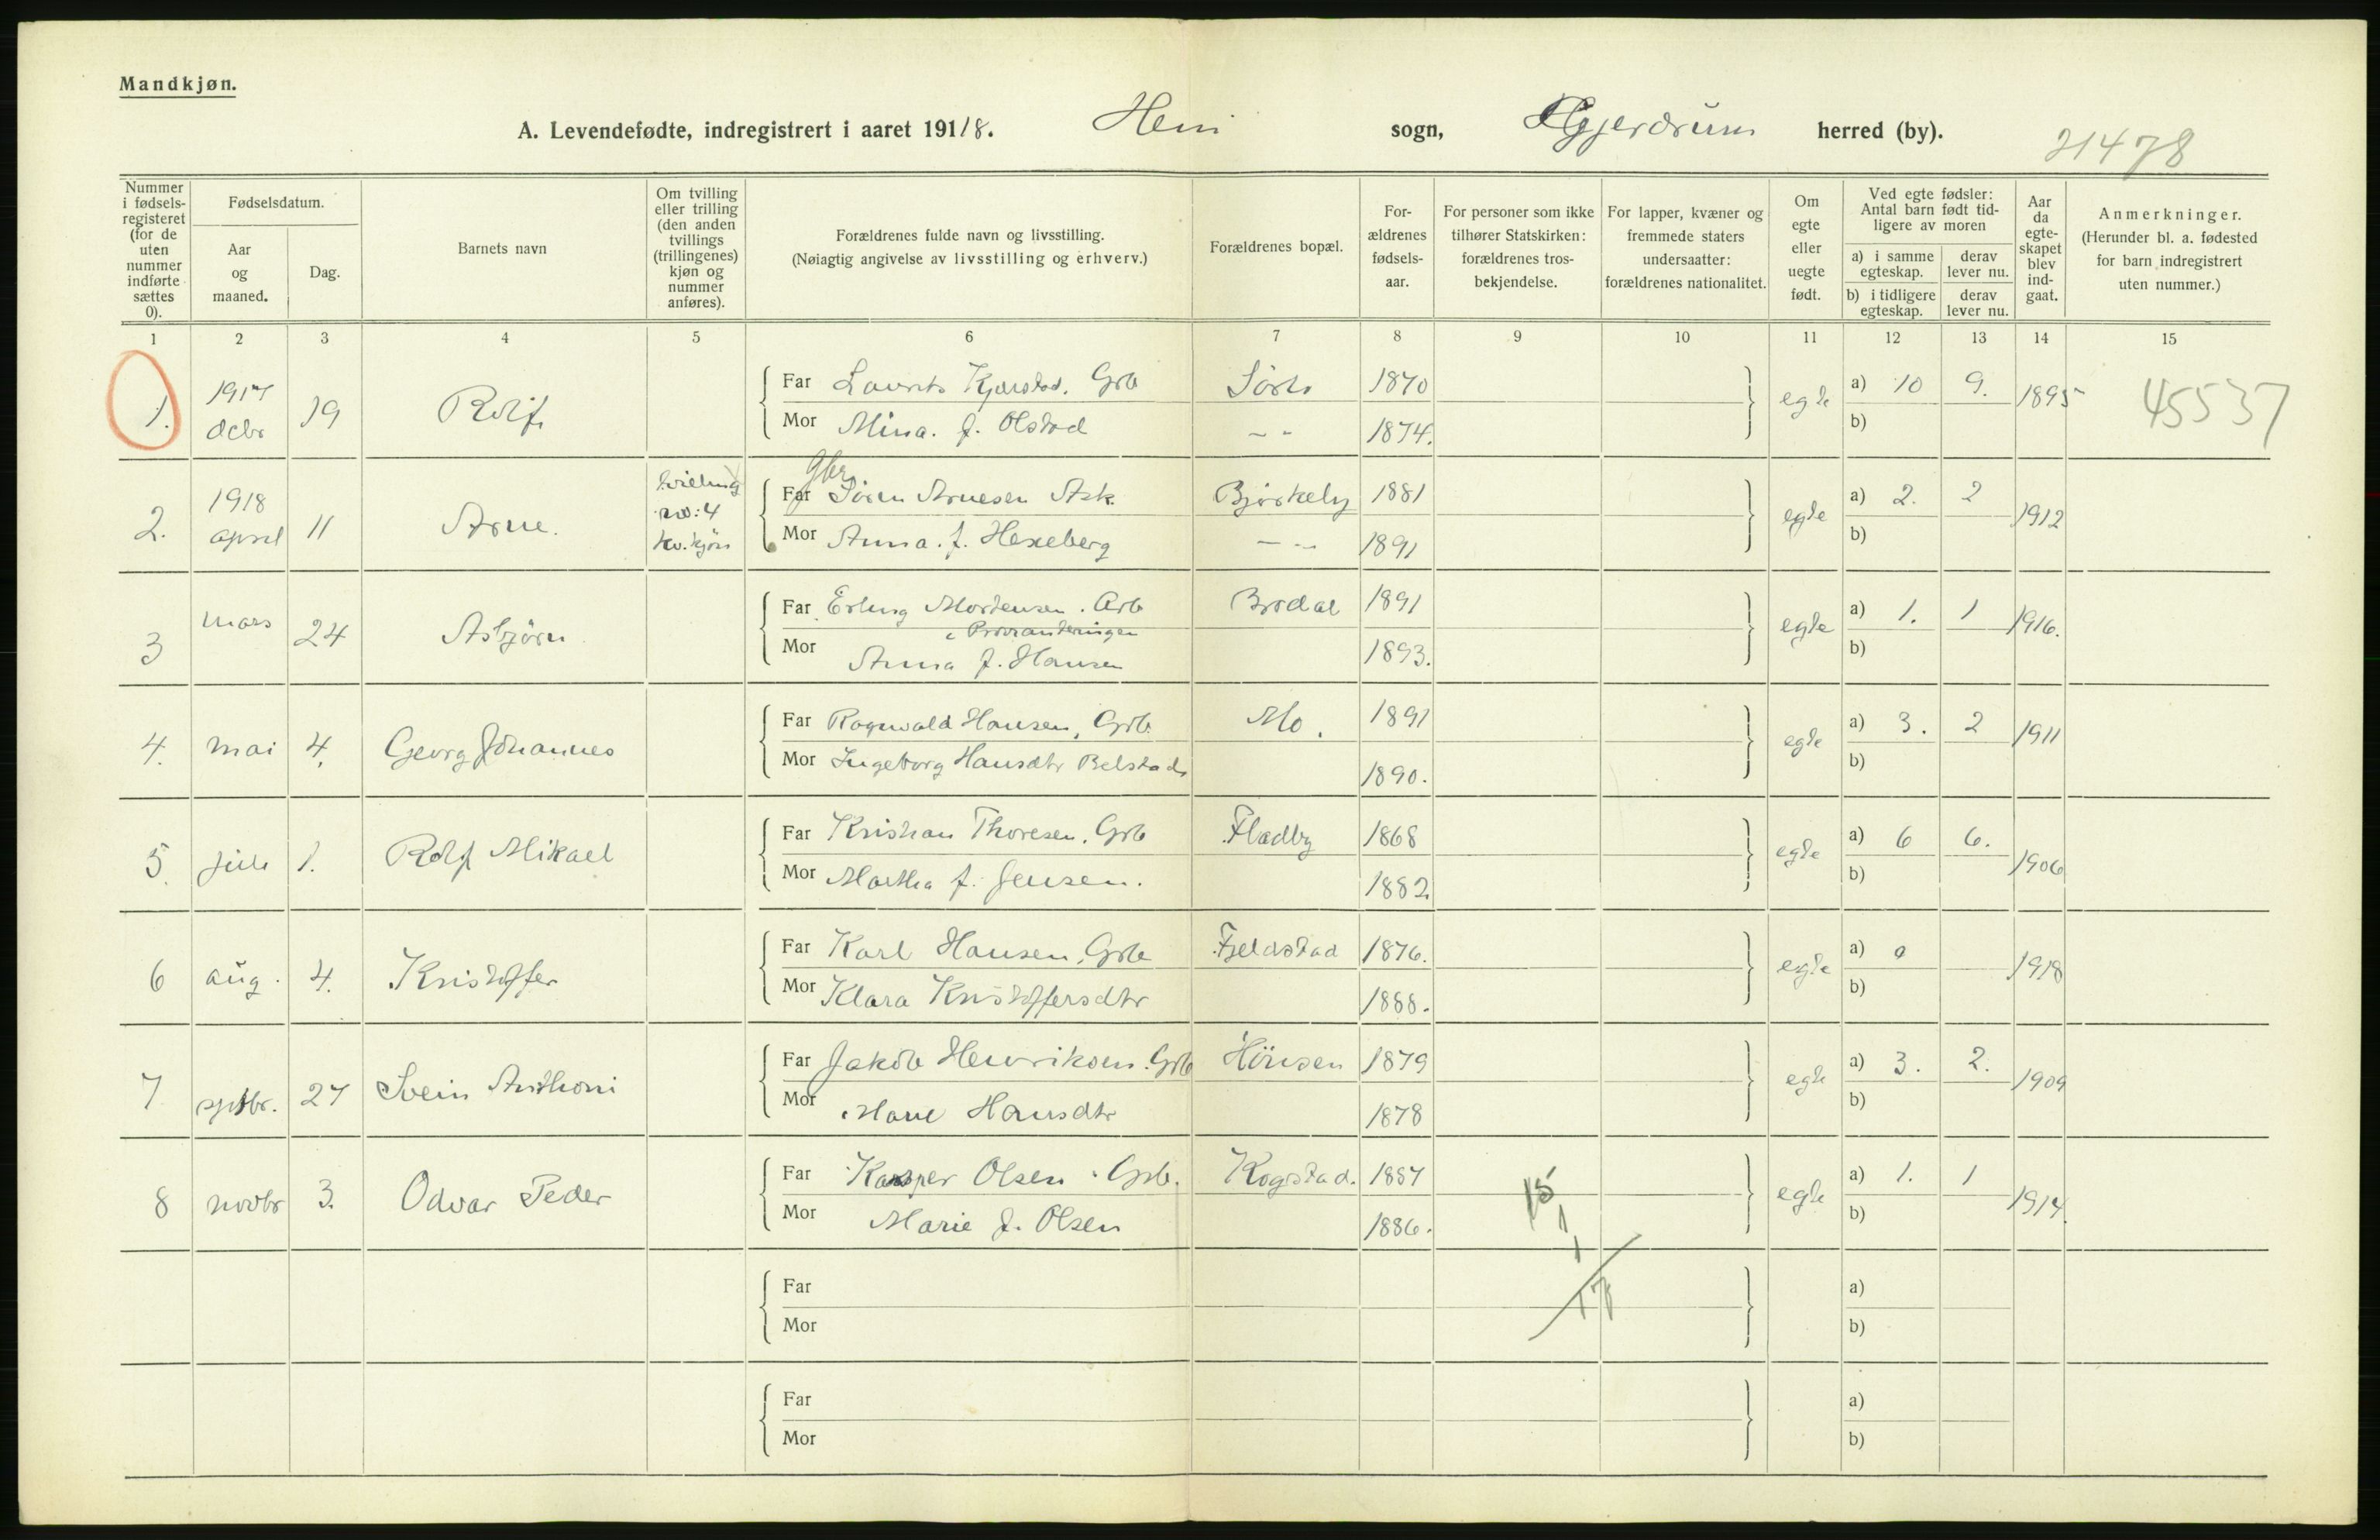 Mandkjøn.
A. Levendefødte, indregistrert i aaret 1918. Heni sogn, Gjerdrum herred (by).
21478
Nummer i fødselsregisteret (for de uten nummer indførte sættes 0).
Fødselsdatum.
Aar og maaned.
Dag.
Barnets navn
Om tvilling eller trilling (den anden tvillings (trillingenes) kjøn og nummer anføres).
Forældrenes fulde navn og livsstilling.
(Nøiagtig angivelse av livsstilling og erhverv.)
Forældrenes bopæl.
Forældrenes fødselsaar.
For personer som ikke tilhører Statskirken: forældrenes trosbekjendelse.
For lapper, kvæner og fremmede staters undersaatter: forældrenes nationalitet.
Om egte eller uegte født.
Ved egte fødsler: Antal barn født tidligere av moren
a) i samme egteskap. derav lever nu.
b) i tidligere egteskap. derav lever nu.
Aar da egteskapet blev indgaat.
Anmerkninger.
(Herunder bl. a. fødested for barn indregistrert uten nummer.)
1 2 3 4 5 6 7 8 9 10 11 12 13 14 15
1. 1917 decbr 19 Rolf Far Laurits Kjærstad. Grb 1870 egte a) 10 9. 1895 45537
Mor Mina. f. Olstad 1874. b)
2. 1918 april 11 Arne. tvilling no: 4 kv.kjøn Gbr Far Søren Arnesen Ask Bjørkely 1881 egte a) 2. 2 1912
Mor Anna. f. Hexeberg 1891 b)
3 mars 24 Asbjörn Far Erling Mortensen. Arb Brodal 1891 egte a) 1. 1 1916.
Mor Anna f. Hansen 1893. b)
4. mai 4. Georg Johannes Far Ragnvald Hansen, Grb. Mo. 1891 egte a) 3. 2 1911
Mor Ingeborg Hansdtr Belstad 1890. b)
5. juli 1. Rolf Mikael Far Kristian Thoresen. Grb Fladby 1868 egte a) 6 6. 1906
Mor Martha f. Jensen. 1882. b)
6 aug. 4. Kristoffer Far Karl Hansen, Grb Fjeldstad 1876. egte a) 0 1918
Mor Klara Kristoffersdtr 1888. b)
7 septbr. 27 Svein Anthoni Far Jakob Henriksen. Grb Hönsen 1879 egte a) 3. 2. 1909
Mor Marie Hansdtr 1878 b)
8 novbr 3. Odvar Peder Far Kasper Olsen. Grb. Kogstad. 1887 15 egte a) 1. 1 1914.
Mor Marie f. Olsen 1886. 1 b)
1
Far a)
17
Mor b)
Far a)
Mor b)